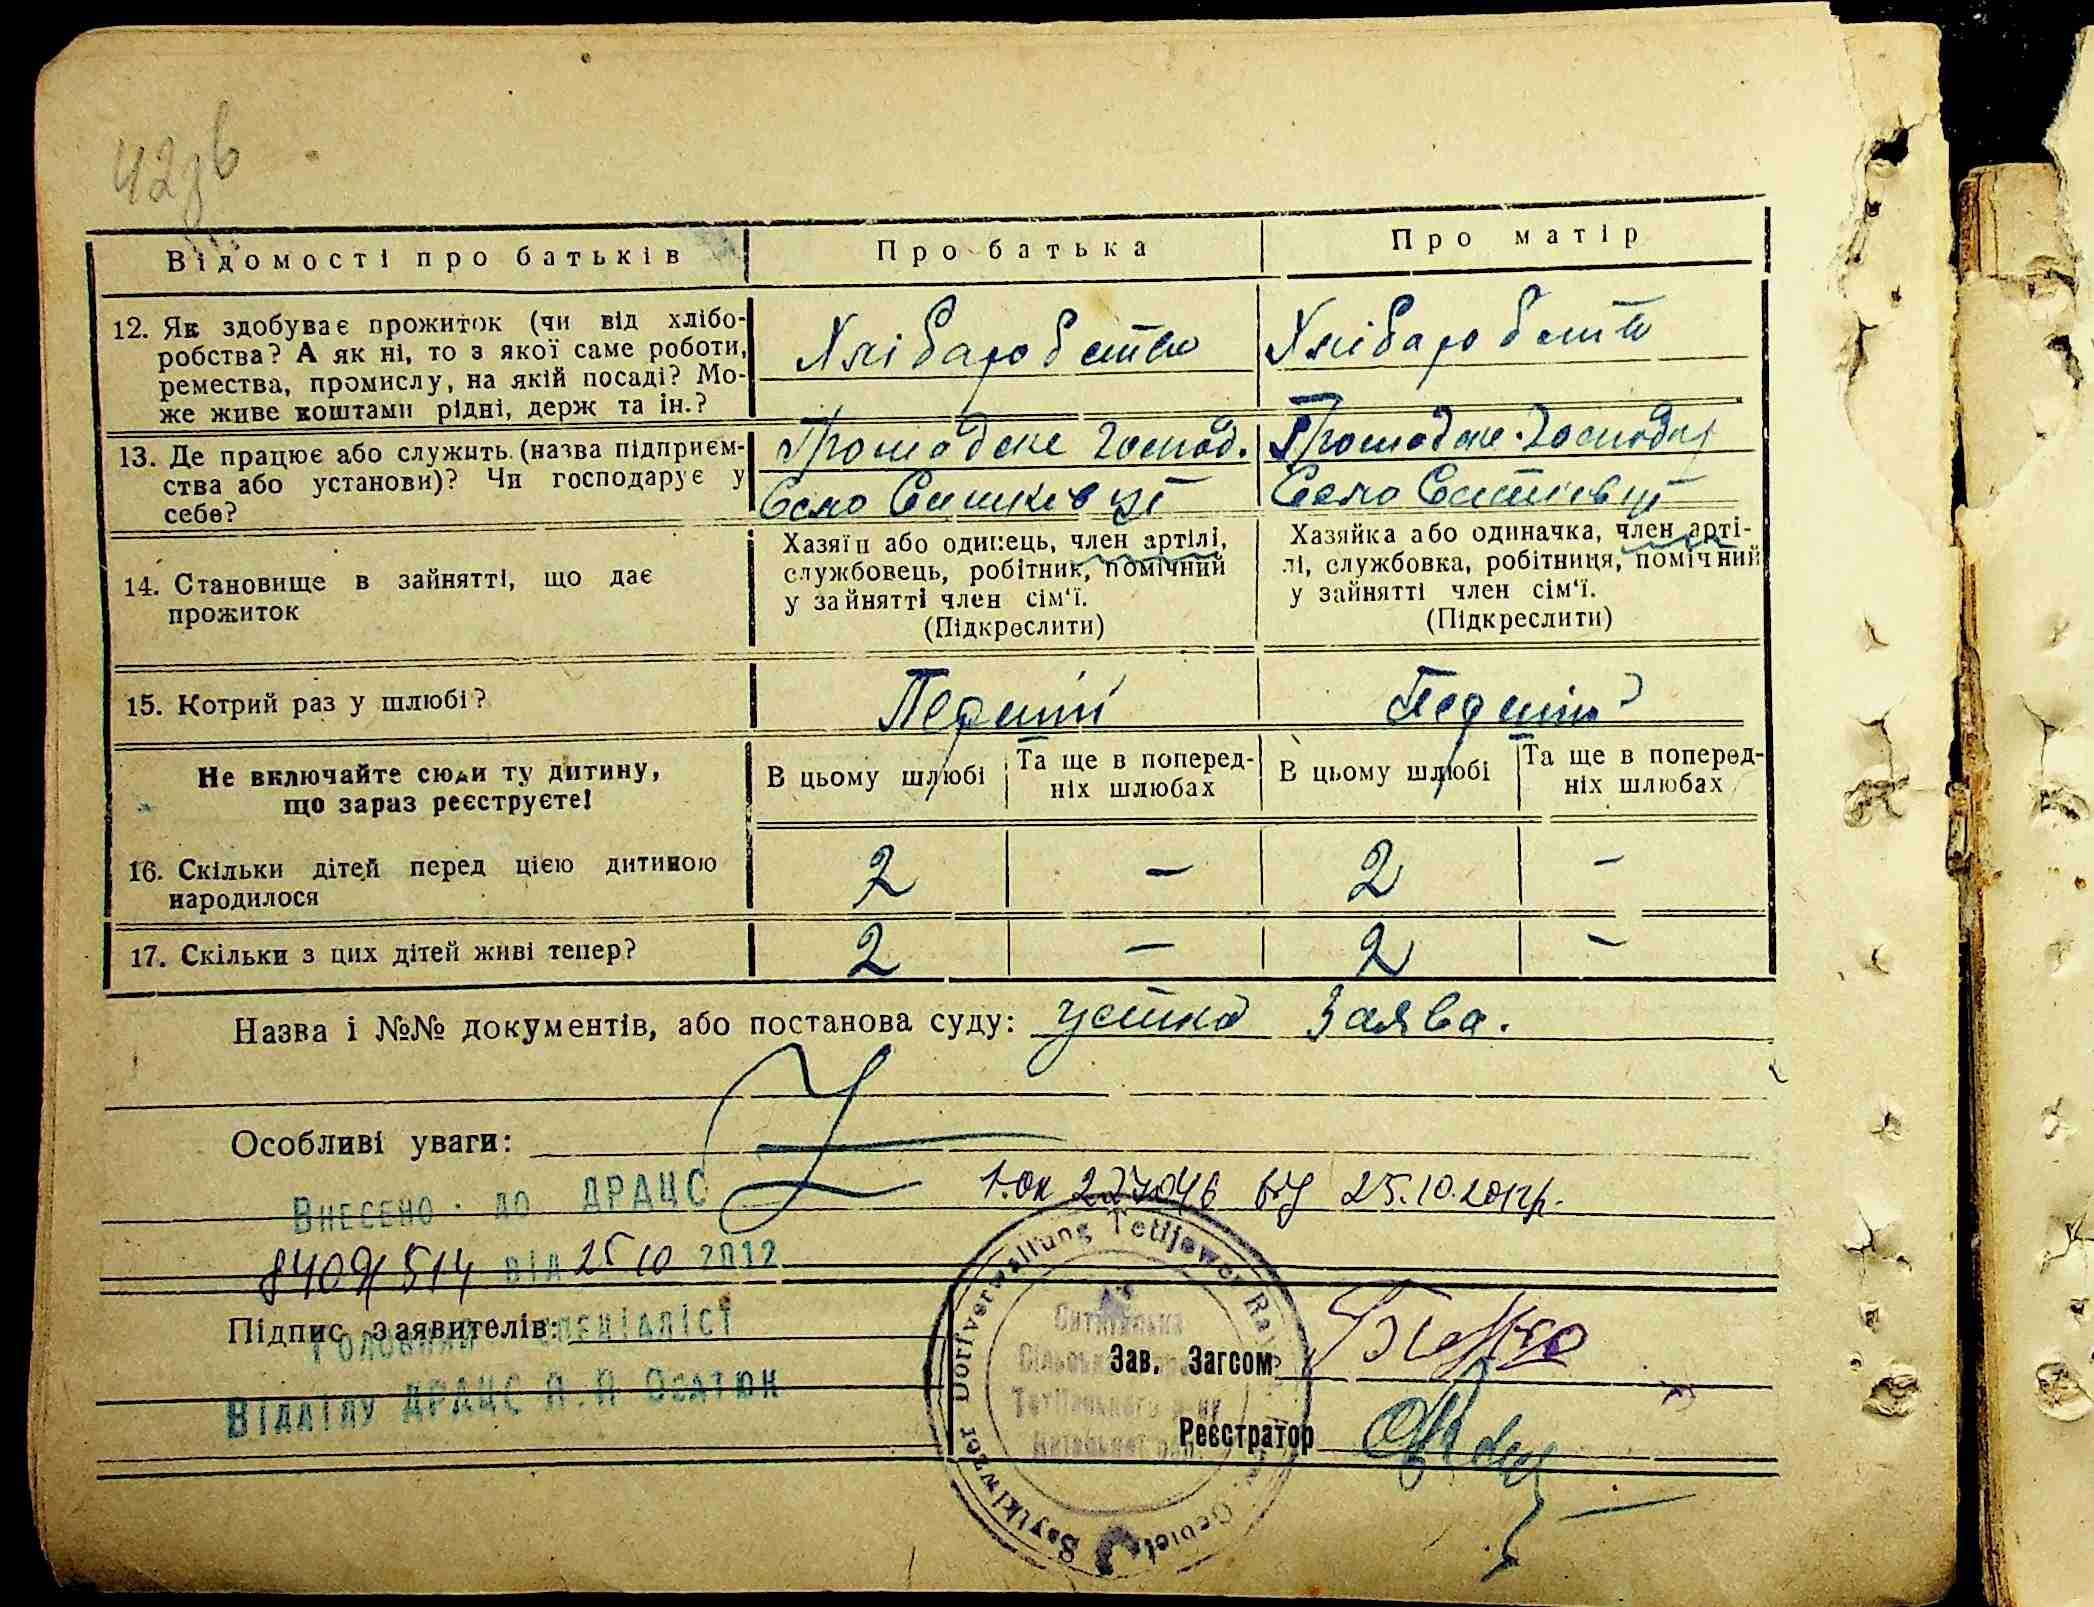 42зв
Відомості про батьків Про батька Про матір
12. Як здобуває прожиток (чи від хлібо-
робства? А як ні, то з якої саме роботи,
ремества, промислу, на якій посаді? Мо-
же живе коштами рідні, держ та ін.?
Хліборобство Хліборобство
13. Де працює або служить (назва підприєм-
ства або установи)? Чи господарує у
себе?
Громадске господ. Громадске господар
Село Ситківці Село Ситківці
14. Становище в зайнятті, що дає
прожиток
Хазяїн або одинець, член артілі,
службовець, робітник, помічний
у зайнятті член сім'ї.
(Підкреслити)
Хазяйка або одиначка, член арті-
лі, службовка, робітниця, помічний
у зайнятті член сім'ї.
(Підкреслити)
15. Котрий раз у шлюбі? Перший Перший
Не включайте сюди ту дитину,
що зараз реєструєте!
В цьому шлюбі Та ще в поперед-
ніх шлюбах
В цьому шлюбі Та ще в поперед-
ніх шлюбах
16. Скільки дітей перед цією дитиною
народилося
2 – 2 –
17. Скільки з цих дітей живі тепер? 2 – 2 –
Назва і №№ документів, або постанова суду: устна заява.
Особливі уваги:
Внесено до ДРАЦС
від 25 10 2012
25.10.2012р.
Підпис заявителів:
Головний спеціаліст
Відділу ДРАЦС
Зав. Загсом
Реєстратор
Dorfverwaltung Tetijewer